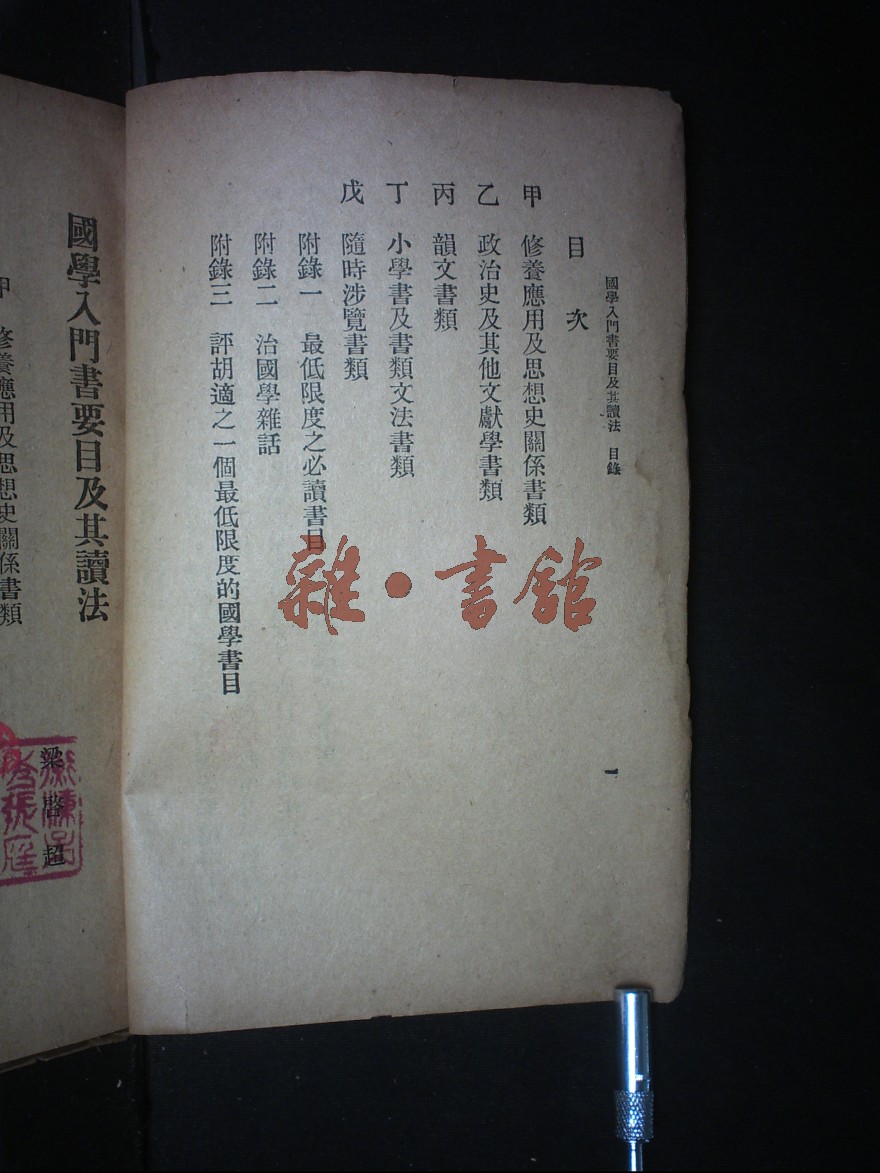 國學入門書要目及其讀法 目錄
一
目次
甲 修養應用及思想史關係書類
乙 政治史及其他文獻學書類
丙 韻文書類
丁 小學書及書類文法書類
戊 隨時涉覽書類
附錄一 最低限度之必讀書目
附錄二 治國學雜話
附錄三 評胡適之一個最低限度的國學書目
雜·書館
國學入門書要目及其讀法
梁啓超
甲 修養應用及思想史關係書類